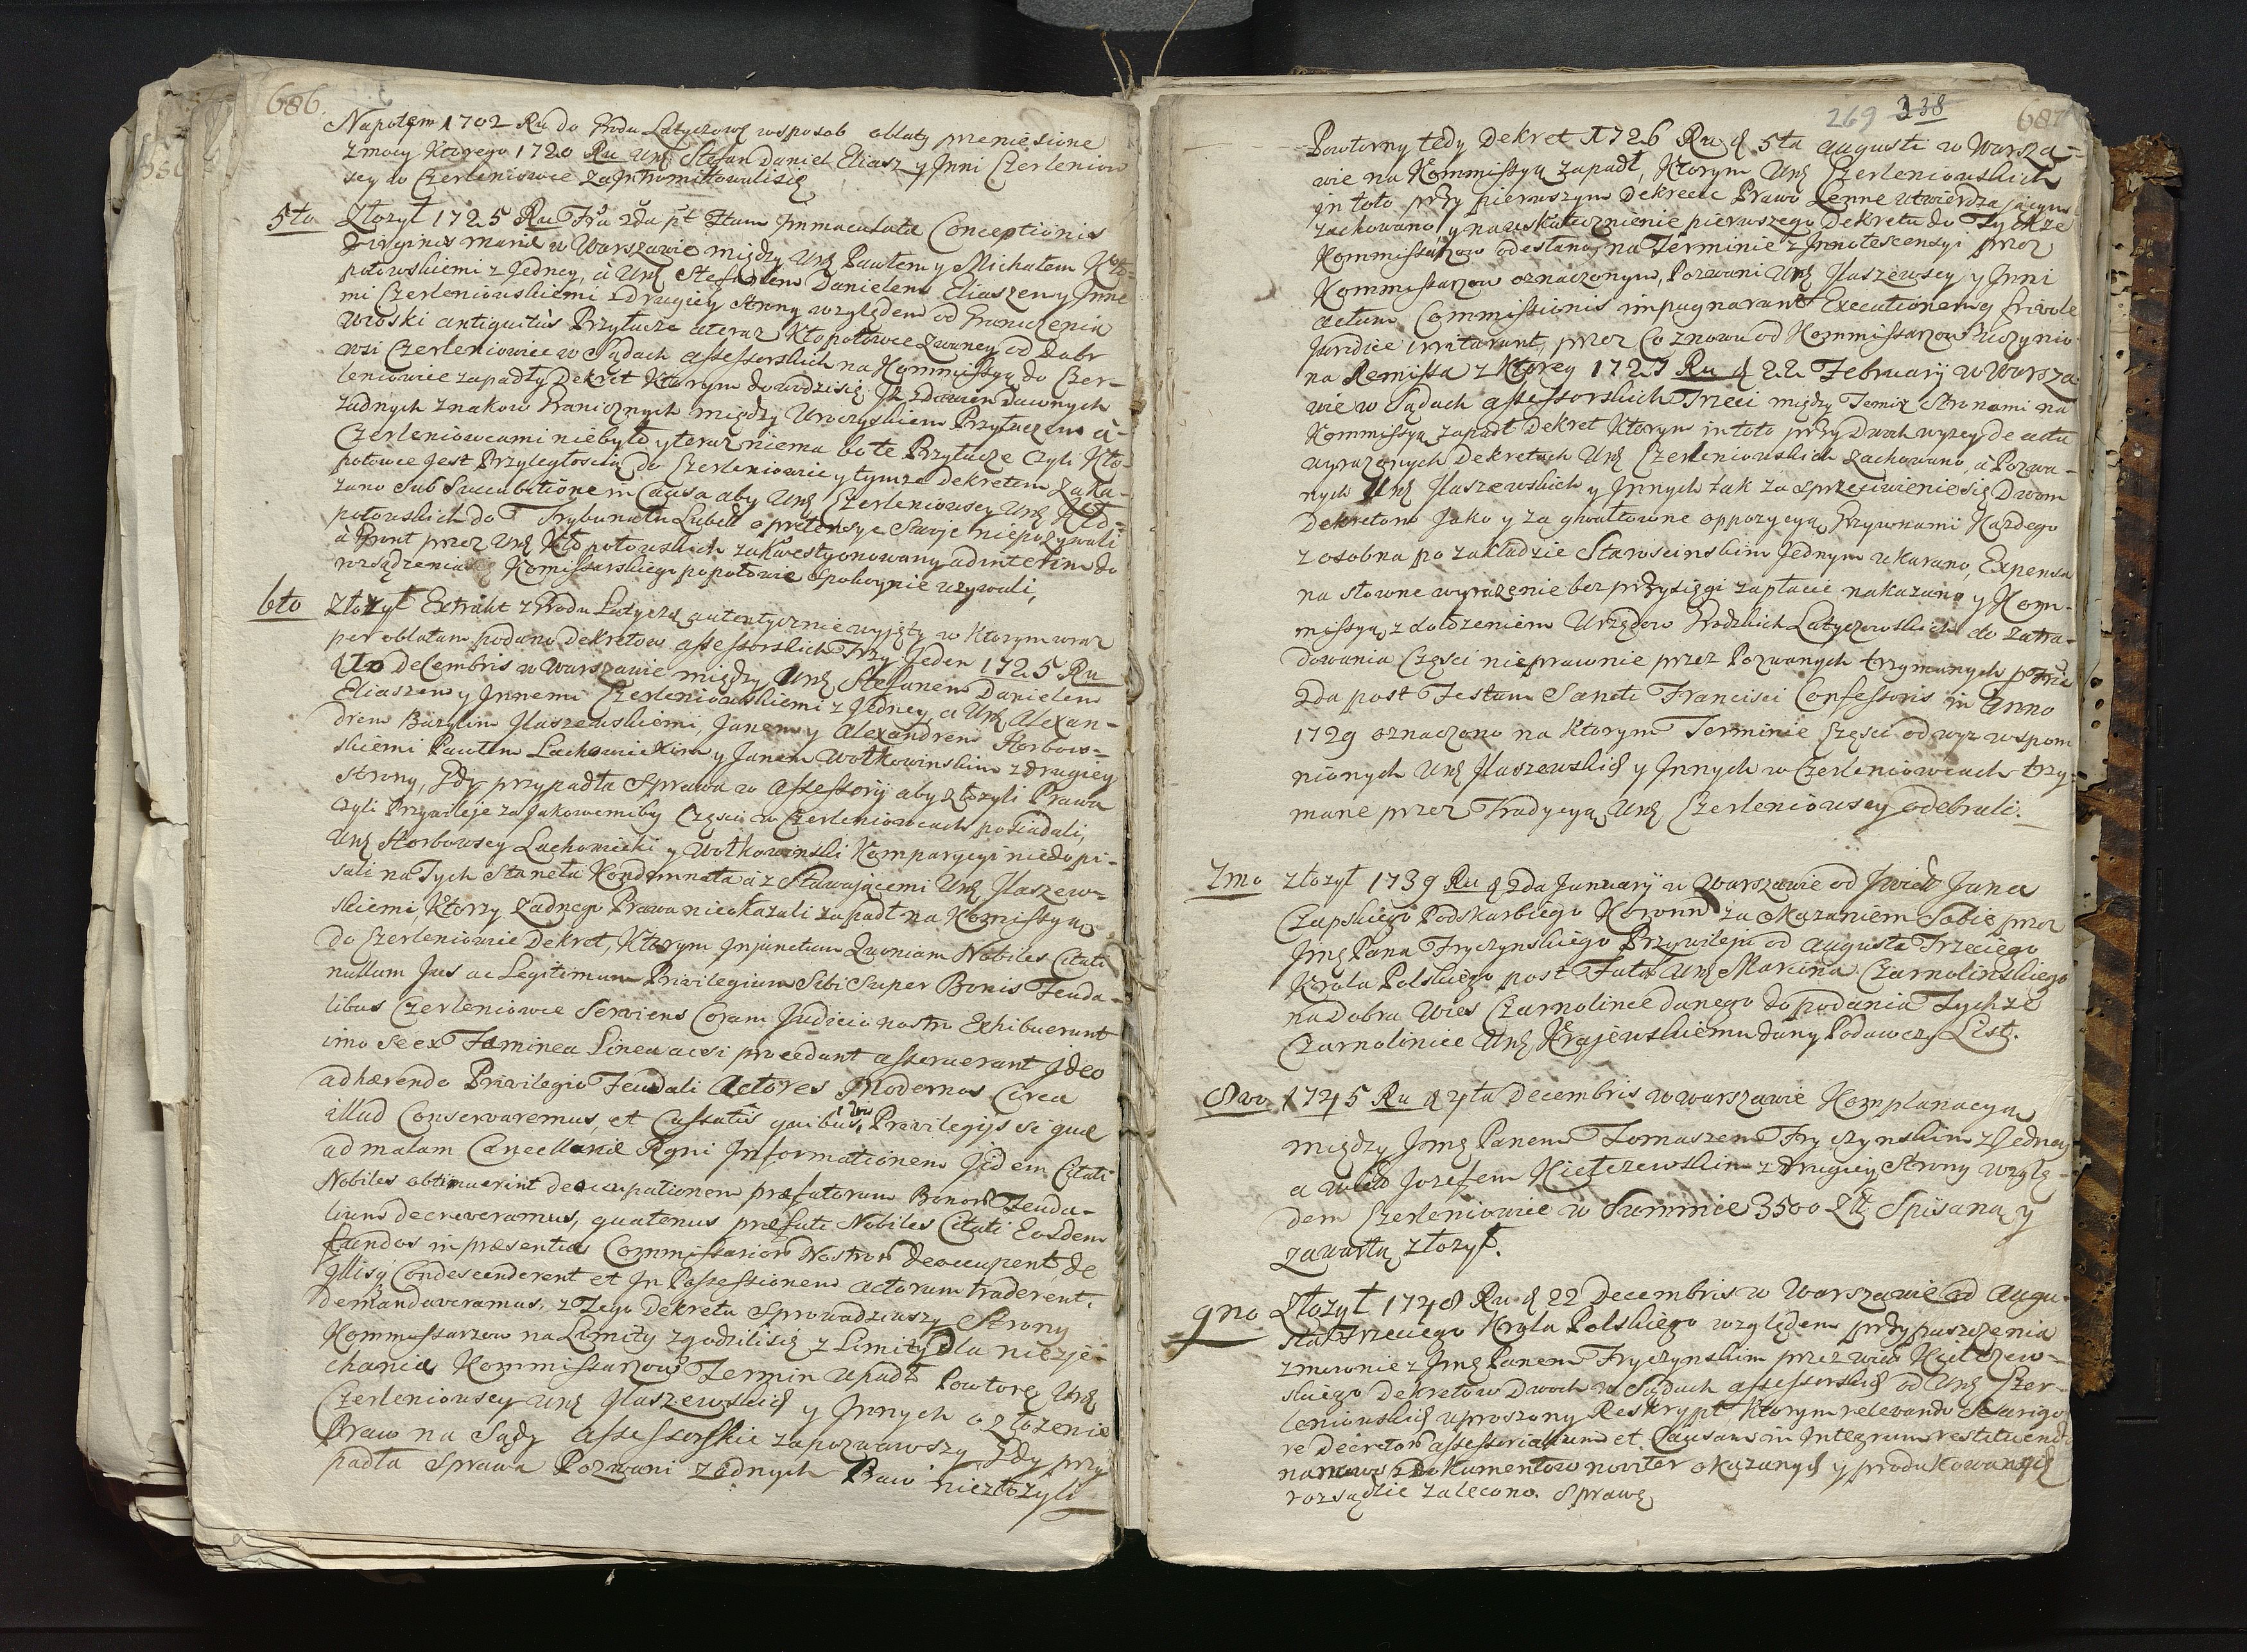 686.
Napotym 1702 Ru do Grodu Latyczowg wsposob oblaty przeniesione
z mocy Ktorego 1720 Ru Urg Stefan Daniel Eliasz y Inni Czerleniow
scy do Czerleniowce zaintromitowalisię
5to Złozył 1725 Ru Fria 2da pt Ftum Immaculatæ Conceptionis
Virginis Mariæ w Warszawie między Urg Pawłem y Michałem Kło-
potowskiemi z Jedney, à Urg Stefanem Danielem Eliaszem y Inne
mi Czerleniowskiemi z drugiey strony względem od Graniczenia
wioski antiquitùs Przyłucze ateraz Kłopotowce zwaney od dobr
wsi Czerleniowiec w Sądach assessorskich na Kommissyą do Czer-
leniowiec zapadły Dekret Ktorym dowodzisię Jż zdawien dawnych
zadnych znakow Granicznych między Uroczyskiem Przyłuczem à
Czerleniowcami niebyło y teraz niema bo te Przyłucze czyli Kło-
potowce jest Przyległością do Czerleniowiec y tymże dekretem zaka-
zano sub Succubitione in Causa aby Urg Czerleniowscy Urg Kło-
potowskich do Trybunału Lubell o pretensye Swoje niepozywali
à Grunt przez Urg Kłopotowskich zakwestyonowany ad interim do
rozsądzenia Komissarskiego popołowie spokoynie uzywali,
6to Złozył Extrakt z Grodu Latyczg autentycznie wyjęty w Ktorym wraz
per oblatam podano Dekretow assessorskich Trzy Jeden 1725 Ru
d 10 Decembris w Warszawie między Urg Stefanem Danielem
Eliaszem y Innemi Czerleniowskiemi z Jedney, a Urg Alexan-
drem Bazylim Ilaszewskiemi, Janem y Alexandrem Horbow-
skiemi Pawłem Lachowieckim y Janem Wołkowinskim z drugiey
strony, Gdy przypadła Sprawa w Assessoryi aby złozyli Prawa
czyli Przywileje za Jakowemiby Częsci w Czerleniowcach posiadali,
Urg Horbowscy Lachowiecki y Wołkowinski Komparycyi niedopi-
sali na Tych Stanęła Kondemnata à z Stawającemi Urg Ilaszew-
skiemi, Ktorzy zadnego Prawa nieokazali zapadł na Komissyą
do Czerleniowiec Dekret, Ktorym Injunctum Quoniam Nobiles Citati
nullum Jus ac Legitimum Privilegium Sibi Super Bonis Feuda-
libus Czerleniowce Serviens Coram Judicio nostro Exhibuerunt
imo se ex Fæminea Linea acsi procedant asseruerant Jdeo
adhærendo Privilegio Feudali Actores Modernos Circa
illud Conservaremus, et Cassatis quibusvis Privilegijs si quæ
ad malam Cancellariæ Regni Informationem Jidem Citati
Nobiles obtinuerint deoccupationem præfatorum Bonorū Feuda-
lium decreveramus, quatenus præfati Nobiles Citati Eosdem
Fundos in præsentia Commissariorū Nostrorū deoccupent, de
Illisq Condescenderent et In Possessionem Actorum traderent.
demandaveramus. z Tego Dekretu Sprowadziwszy Strony
Kommissarzow na Limity zgodzilisię z Limity dla niezje-
chania Kommissarzow Termin upadł Powtore Urg
Czerleniowscy Urg Ilaszewskich y Innych o złozenie
Praw na Sądy Assessorskie zapozwawszy Gdy przy
padła Sprawa Pozwani zadnych Praw niezłozyli
269 338 687
Powtorny tedy Dekret 1726 Ru d 5ta Augusti w Warsza-
wie na Kommissyą zapadł, Ktorym Urg Czerleniowskich
in toto przy pierwszym Dekrecie Prawo Lenne utwierdzającym
zachowano y na uskutecznienie pierwszego Dekretu do Tychże
Kommissarzow odesłano, na Terminie z Innotescencyi przez
Kommissarzow oznaczonym, Pozwani Urg Ilaszewscy y Inni
actum Commissionis impugnarunt Executionemq frivole
Juridice irritarunt, przez Co znowu od Kommissarzow uczynio
na Remissa z Ktorey 1727 Ru d 22 February w Warsza
wie w Sądach assessorskich Trzeci między Temiż Stronami na
Kommissyą zapadł Dekret Ktorym in toto przy Dwoch wyzey de actu
wyrazonych Dekretach Urg Czerleniowskich zachowano, à Pozwa-
nych Urg Ilaszewskich y Innych tak za sprzeciwienie się Dwom
Dekretom Jako y za gwałtowne oppozycyą Grzywnami Kazdego
z osobna po zakładzie Staroscinskim Jednym ukarano, Expensa
na słowne wyrazenie bez przysięgi zapłacić nakazano y Kom-
missyą z dołozeniem Urzędow Grodzkich Latyczowskich do zatra-
dowania Częsci nieprawnie przez Pozwanych trzymanych pro Fria
2da post Festum Sancti Francisci Confessoris in Anno
1729 oznaczono na Ktorym Terminie Częsci od wyz wspom
nionych Urg Ilaszewskich y Innych w Czerleniowcach trzy-
mane przez Tradycyą Urg Czerleniowscy odebrali.
7mo złozył 1739 Ru d 2da January w Warszawie od Jwiel Jana
Czapskiego Podskarbiego Koronn za okazaniem Sobie przez
Jmg Pana Fryczynskiego Przywileju od Augusta Trzeciego
Krola Polskiego post Fata Urg Marcina Czarnolinskiego
na Dobra Wies Czarnolince danego do podania Tychże
Czarnoliniec Urg Krajewskiemu dany Podawczy List.
8vo 1745 Ru d 4ta Decembris w Warszawie Komplanacyą
między Jmg Panem Tomaszem Fryczynskim z Jedney
a wield Jozefem Kiełczewskim z drugiey Strony wzglę-
dem Czerleniowiec w Summie 3500 Złł Spisaną y
zawartą złozył.
9no Złozył 1748 Ru d 22 Decembris w Warszawie od Augu-
sta Trzeciego Krola Polskiego względem przypuszczenia
zmownie z Jmg Panem Fryczynskim przez wiel Kiełczew-
skiego Dekretow Dwoch w Sądach assessorskich od Urg Czer-
leniowskich uproszony Reskrypt Ktorym relevando Se a rigo
re Decretorū assessorialium et Causam in Integrum restituendo
nanowo z Dokumentow noviter okazanych y produkowanych
rozsądzic zalecono. Sprawę